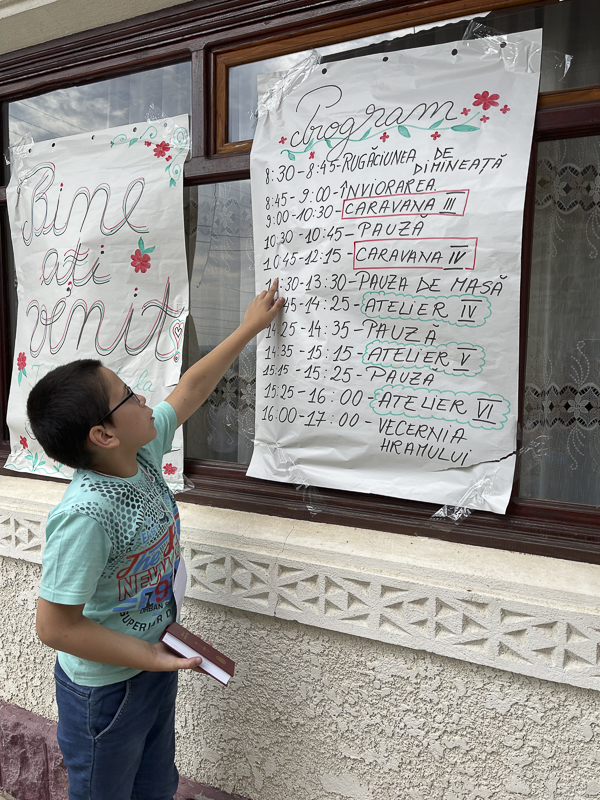 Bine
ați
venit
Program
8:30 - 8:45 - RUGĂCIUNEA DE DIMINEAȚĂ
8:45 - 9:00 - ÎNVIORAREA
9:00 - 10:30 - CARAVANA III
10:30 - 10:45 - PAUZĂ
10:45 - 12:15 - CARAVANA IV
:30 - 13:30 - PAUZA DE MASĂ
45 - 14:25 - ATELIER IV
14:25 - 14:35 - PAUZĂ
14:35 - 15:15 - ATELIER V
15:15 - 15:25 - PAUZĂ
15:25 - 16:00 - ATELIER VI
16:00 - 17:00 - VECERNIA
HRAMULUI
NEW
79
URBAN
SUPERIOR